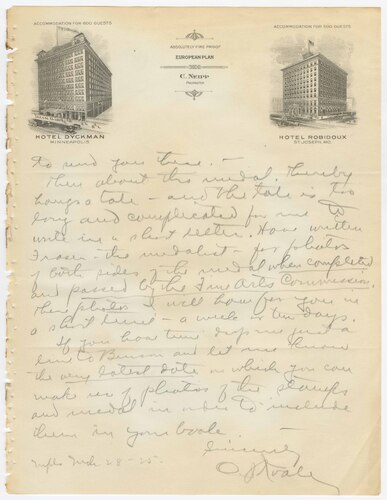 ACCOMMODATION FOR 600 GUESTS
HOTEL DYCKMAN
MINNEAPOLIS
ABSOLUTELY FIRE PROOF
EUROPEAN PLAN
C. NEIPP
PROPRIETOR
ACCOMMODATION FOR 500 GUESTS
HOTEL ROBIDOUX
ST JOSEPH, MO.
to send you these. —
Then about this medal. Thereby
hangs a tale — and the tale is too
long and complicated for me to
write in a short letter. Have written
Fraser — the medalist — for photos
of both sides of the medal when completed
and passed by the Fine Arts Commission.
These photos I will have for you in
a short time — a week or ten days.
If you have time drop me just a
line to Benson and let me know
the very latest date on which you can
make use of photos of the stamps
and medal in order to include
them in your book.
Sincerely
Mpls Mch 28-25.